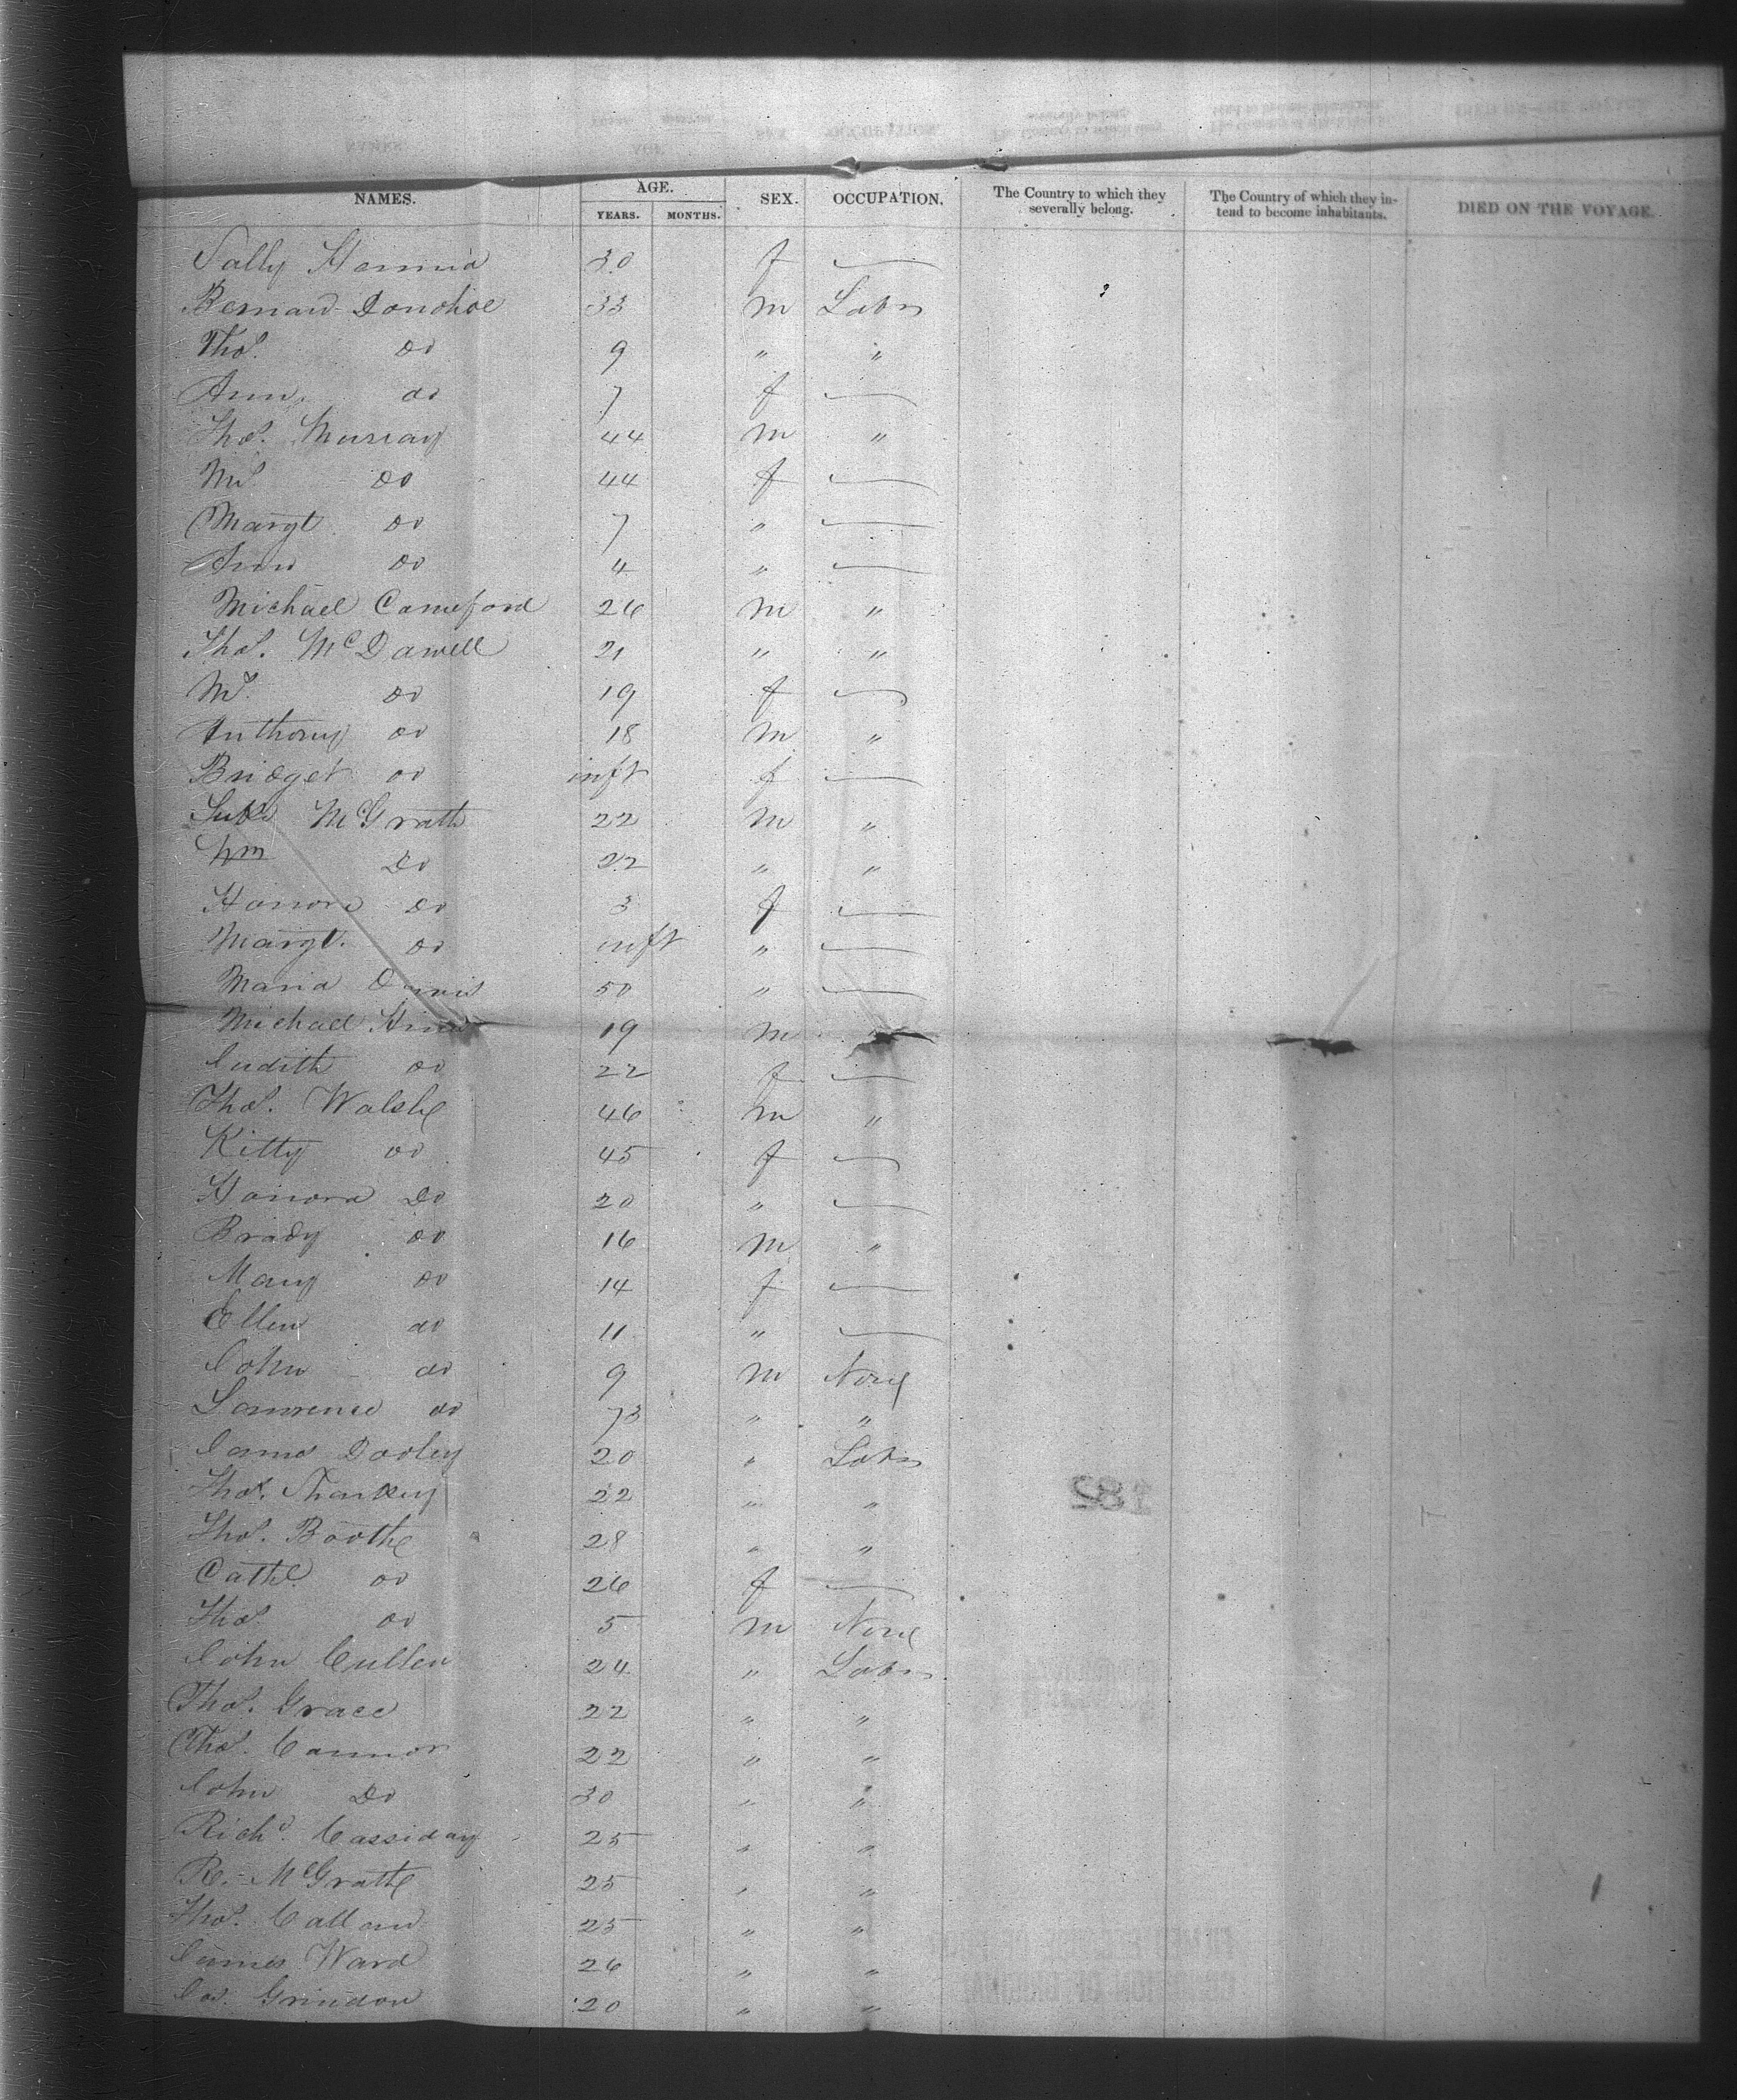 NAMES. AGE. SEX. OCCUPATION. The Country to which they severally belong. The Country of which they intend to become inhabitants. DIED ON THE VOYAGE.
YEARS. MONTHS.
Sally 30 f —
Bernard Donohoe 33 m Labr
Thos. Do 9 " "
Ann do 7 f —
Thos. Murray 44 m "
Ms Do 44 f —
Margt Do 7 " —
Ann Do 4 " —
Michael Comerford 26 m "
Thos. McDowell 21 " "
Ms Do 19 f —
Anthony Do 18 m "
Bridget Do inft f —
Luke McGrath 22 m "
Wm Do 22 " "
Honora Do 3 f —
Margt. Do inft " —
Maria 50 " —
Michael 19 m
Judith Do 22 f —
Thos. Walshe 46 m "
Kitty Do 45 f —
Honora Do 20 " —
Brady Do 16 m "
Mary Do 14 f —
Ellen do 11 " —
John do 9 m None
Lawrence do 73 " "
James Dooley 20 " Labr
Thos. Sharkey 22 " "
Thos. Boothe 28 " "
Cathe Do 26 f —
Thos. Do 5 m None
John Cullen 24 " Labr
Thos. Grace 22 " "
Thos. Connor 22 " "
John Do 30 " "
Richd. Cassiday 25 " "
R. McGrath 25 " "
Thos. Callan 25 " "
James Ward 26 " "
Grindon 20 " "